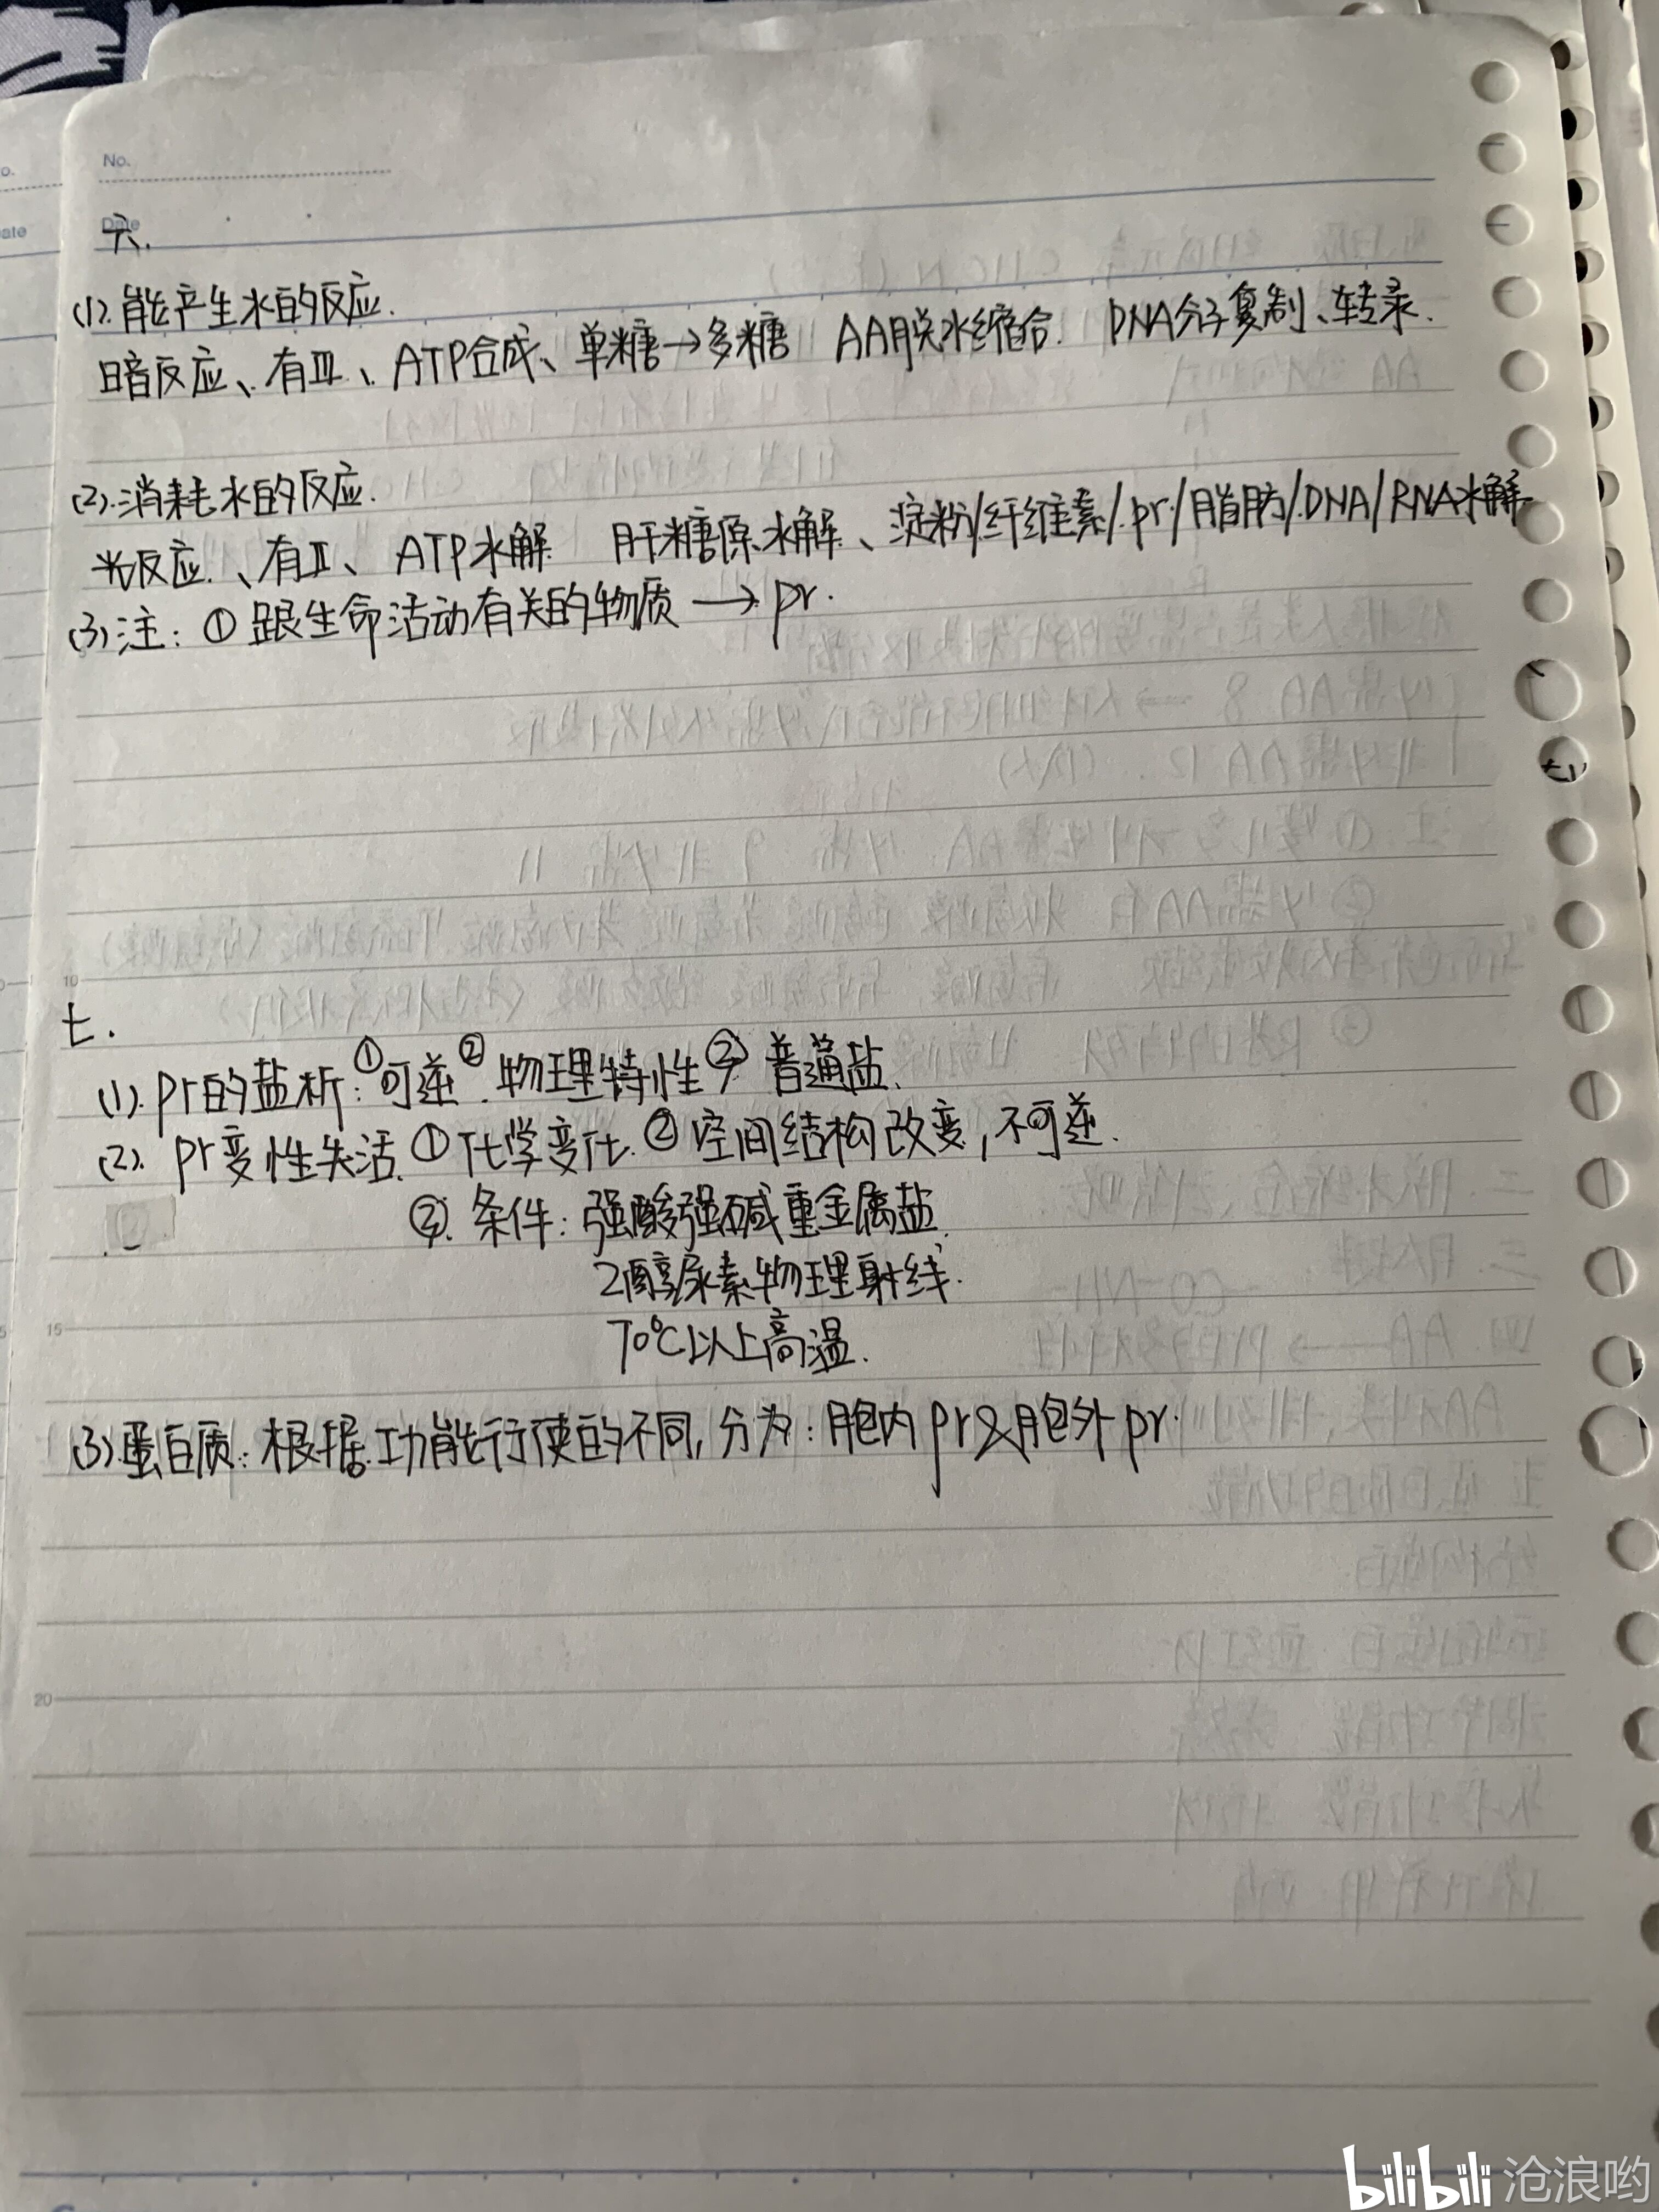 No.
Date
六.
(1).能产生水的反应.
暗反应、有Ⅲ、ATP合成、单糖→多糖 AA脱水缩合. DNA分子复制、转录.
(2).消耗水的反应.
光反应、有Ⅱ、ATP水解 肝糖原水解、淀粉/纤维素/pr/脂肪/DNA/RNA水解
(3)注:①跟生命活动有关的物质→pr.
10
七.
(1).pr的盐析:①可逆②物理特性③普通盐.
(2).pr变性失活①化学变化.②空间结构改变,不可逆.
③.条件:强酸强碱重金属盐
乙醇尿素物理射线.
15
70℃以上高温.
(3).蛋白质:根据功能行使的不同,分为:胞内pr&胞外pr.
20
bilibili 沧浪哟